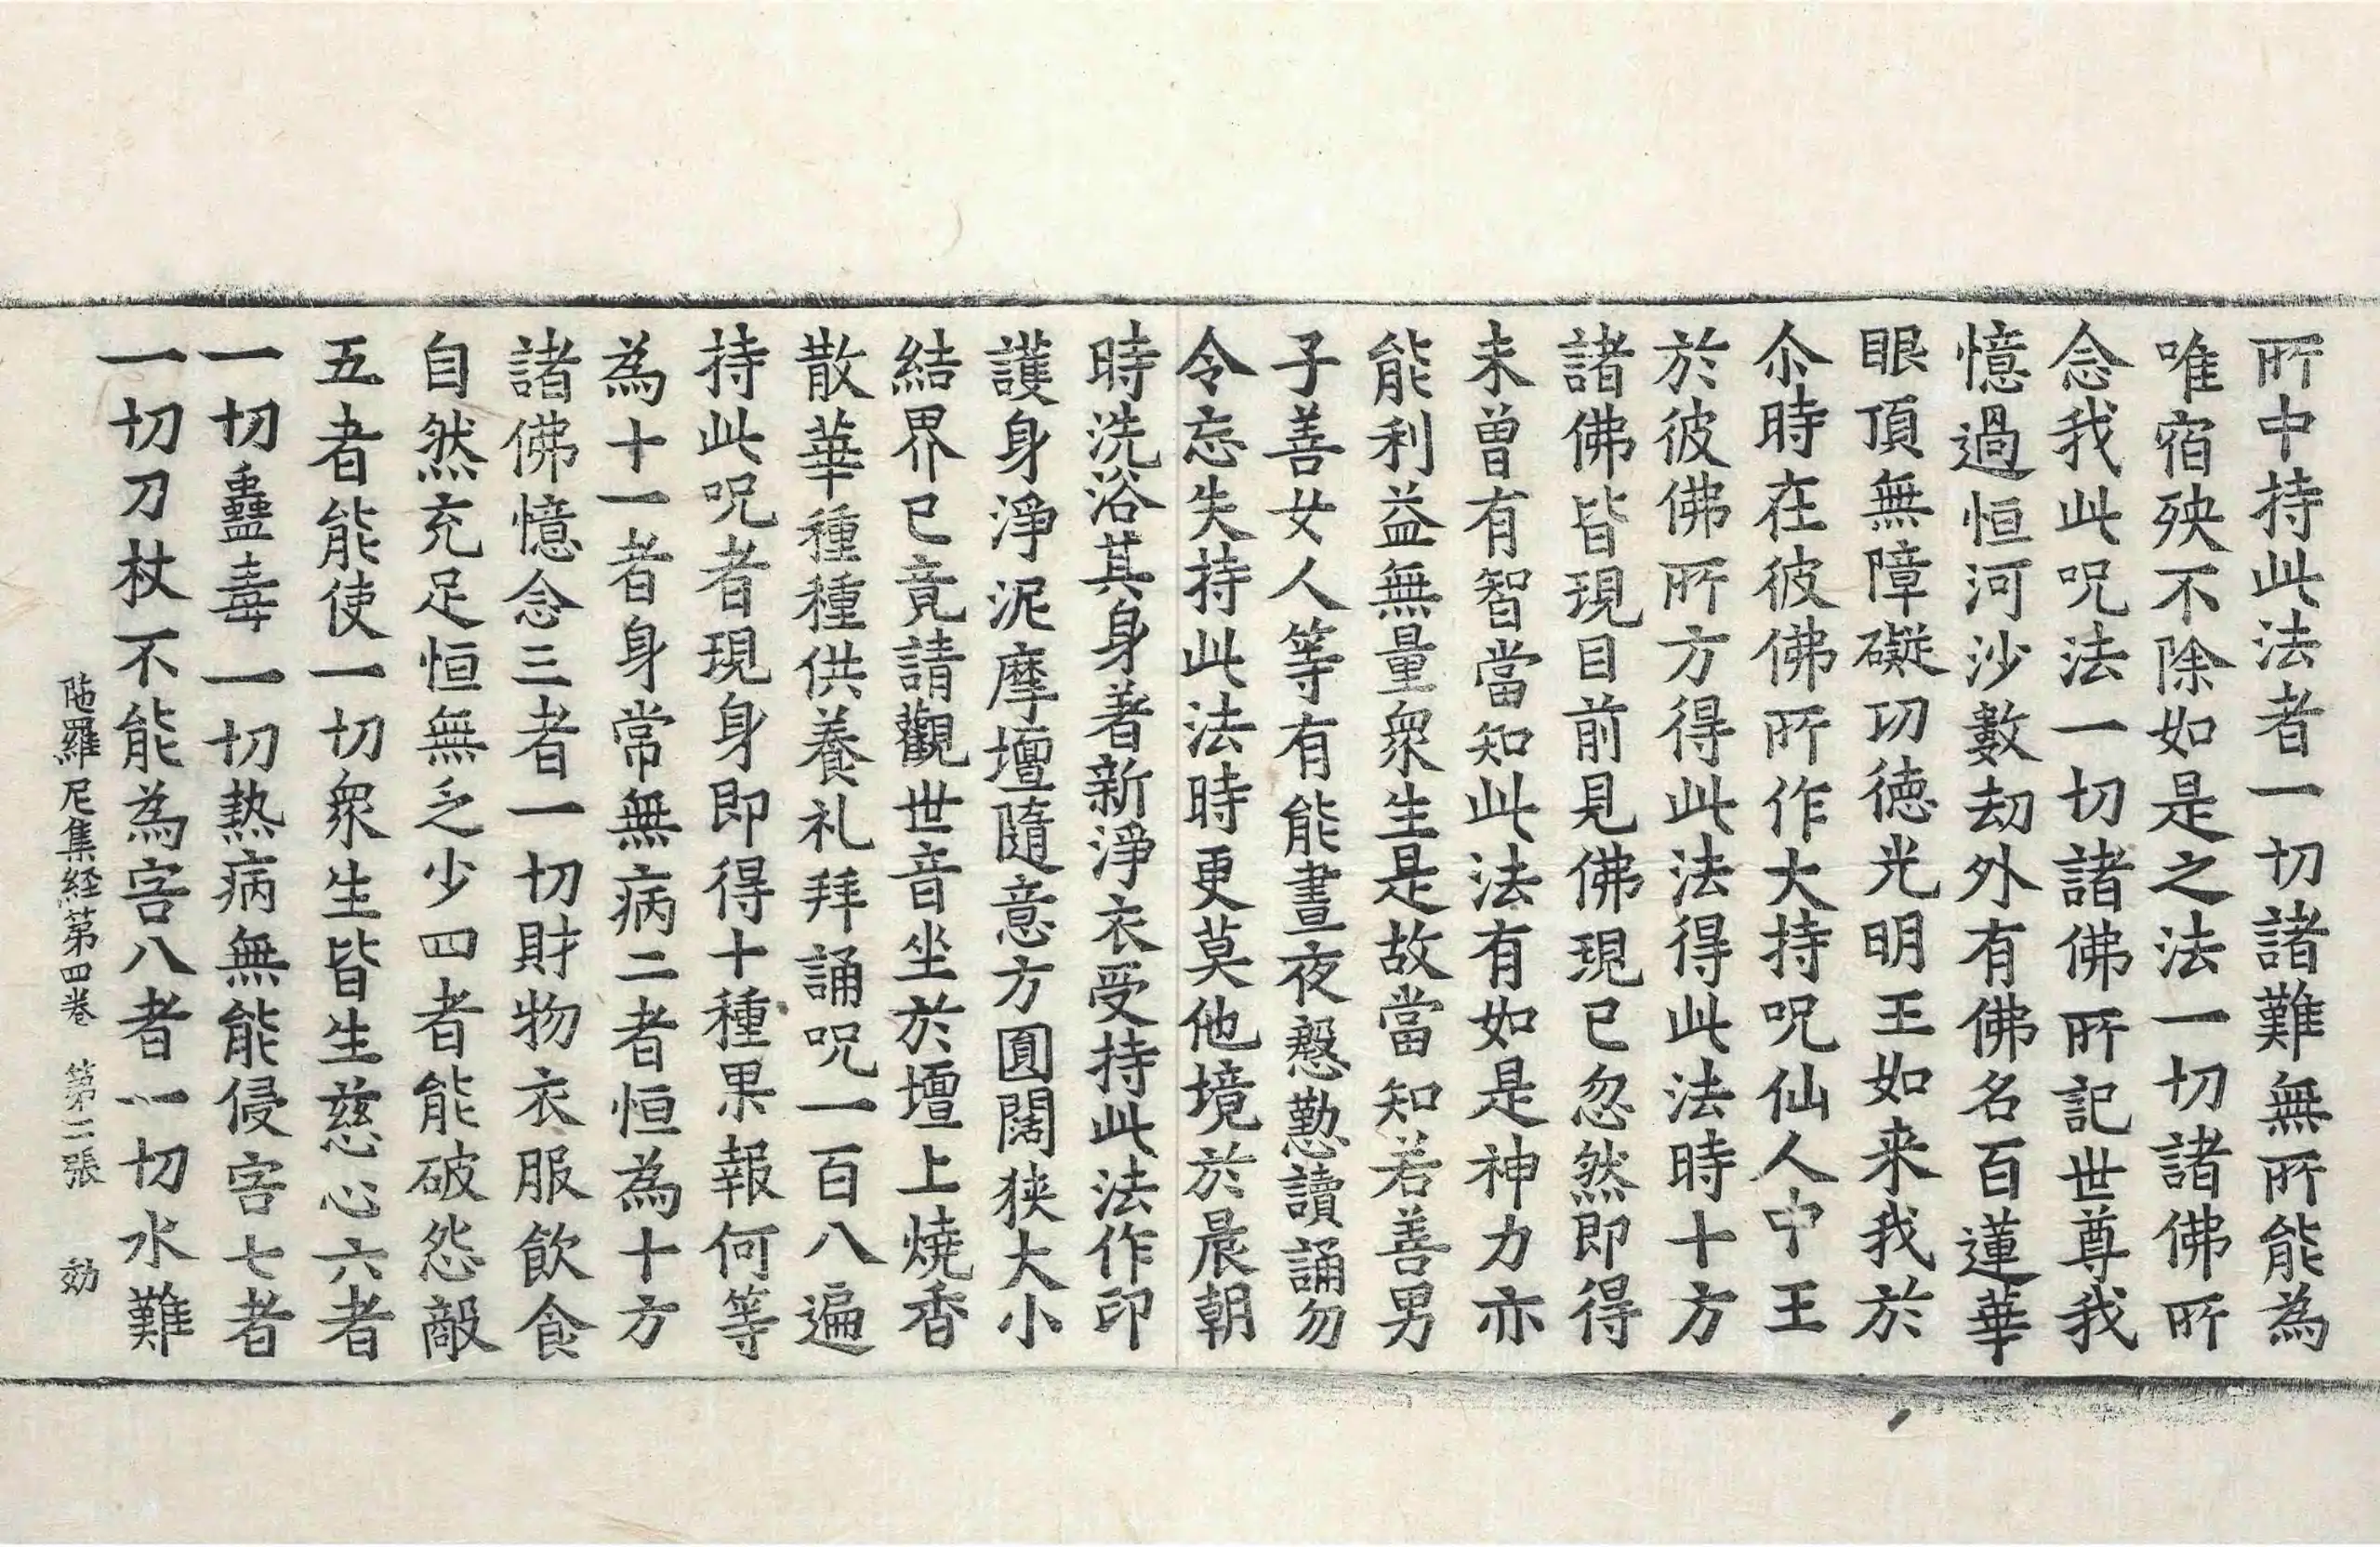 所中持此法者一切諸難無所能為
唯宿殃不除如是之法一切諸佛所
念我此呪法一切諸佛所記世尊我
憶過恒河沙數劫外有佛名百蓮華
眼頂無障礙功徳光明王如来我於
尒時在彼佛所作大持呪仙人中王
於彼佛所方得此法得此法時十方
諸佛皆現目前見佛現已忽然即得
未曽有智當知此法有如是神力亦
能利益無量衆生是故當知若善男
子善女人等有能晝夜慇懃讀誦勿
令忘失持此法時更莫他境於晨朝
時洗浴其身著新淨衣受持此法作印
護身淨泥摩壇隨意方圓闊狹大小
結界已竟請觀世音坐於壇上燒香
散華種種供養礼拜誦呪一百八遍
持此呪者現身即得十種果報何等
為十一者身常無病二者恒為十方
諸佛憶念三者一切財物衣服飲食
自然充足恒無乏少四者能破怨敵
五者能使一切衆生皆生慈心六者
一切蠱毒一切熱病無能侵害七者
一切刀杖不能為害八者一切水難
陁羅尼集経第四卷 第二張 効